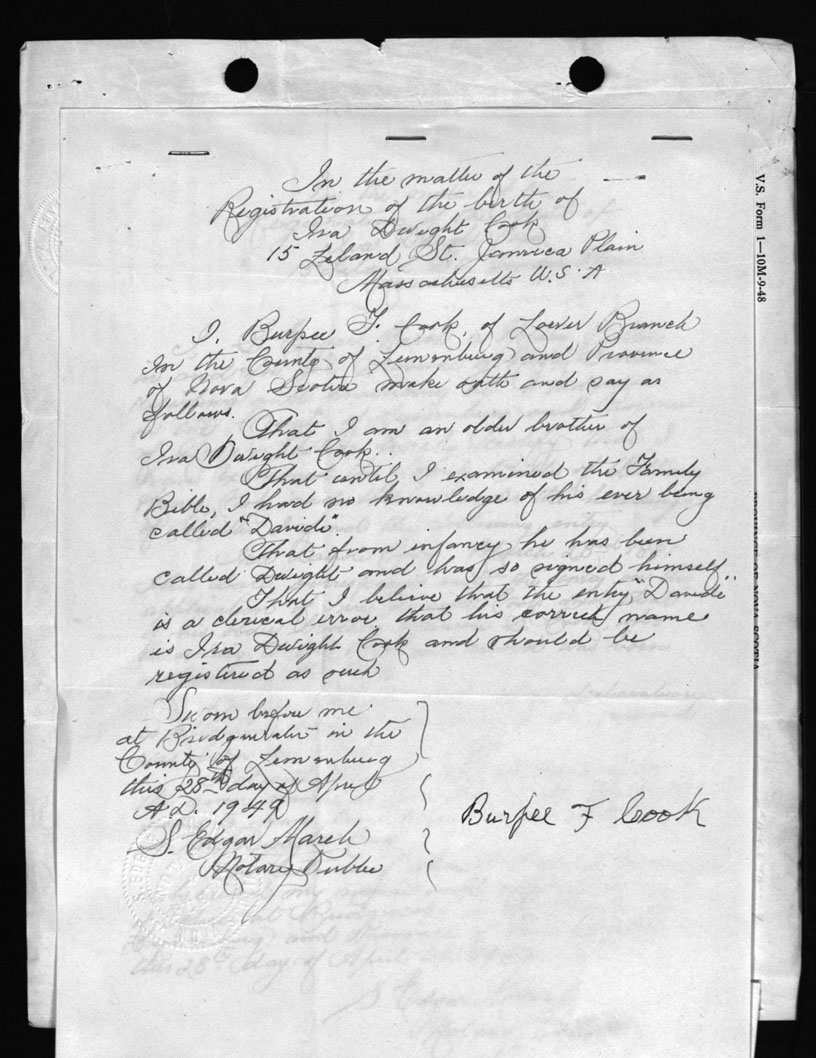 In the matter of the
Registration of the birth of
Ira Dwight Cook
15 Zeland St. Jamaica Plain
Massachusetts U.S.A
I, Burpee F. Cook, of Lower Branch
In the County of Lunenburg and Province
of Nova Scotia make oath and say as
follows.
That I am an older brother of
Ira Dwight Cook.
That until I examined the Family
Bible, I had no knowledge of his ever being
called "Davide".
That from infancy he has been
called Dwight and has so signed himself
That I believe that the entry "Davide"
is a clerical error, that his correct name
is Ira Dwight Cook and should be
registered as such
Sworn before me
at Bridgewater in the
County of Lunenburg
this 28th day of April
A.D. 1949
S. Edgar March
Notary Public
Burpee F Cook
V.S. Form 1—10M-9-48
PROVINCE OF NOVA SCOTIA